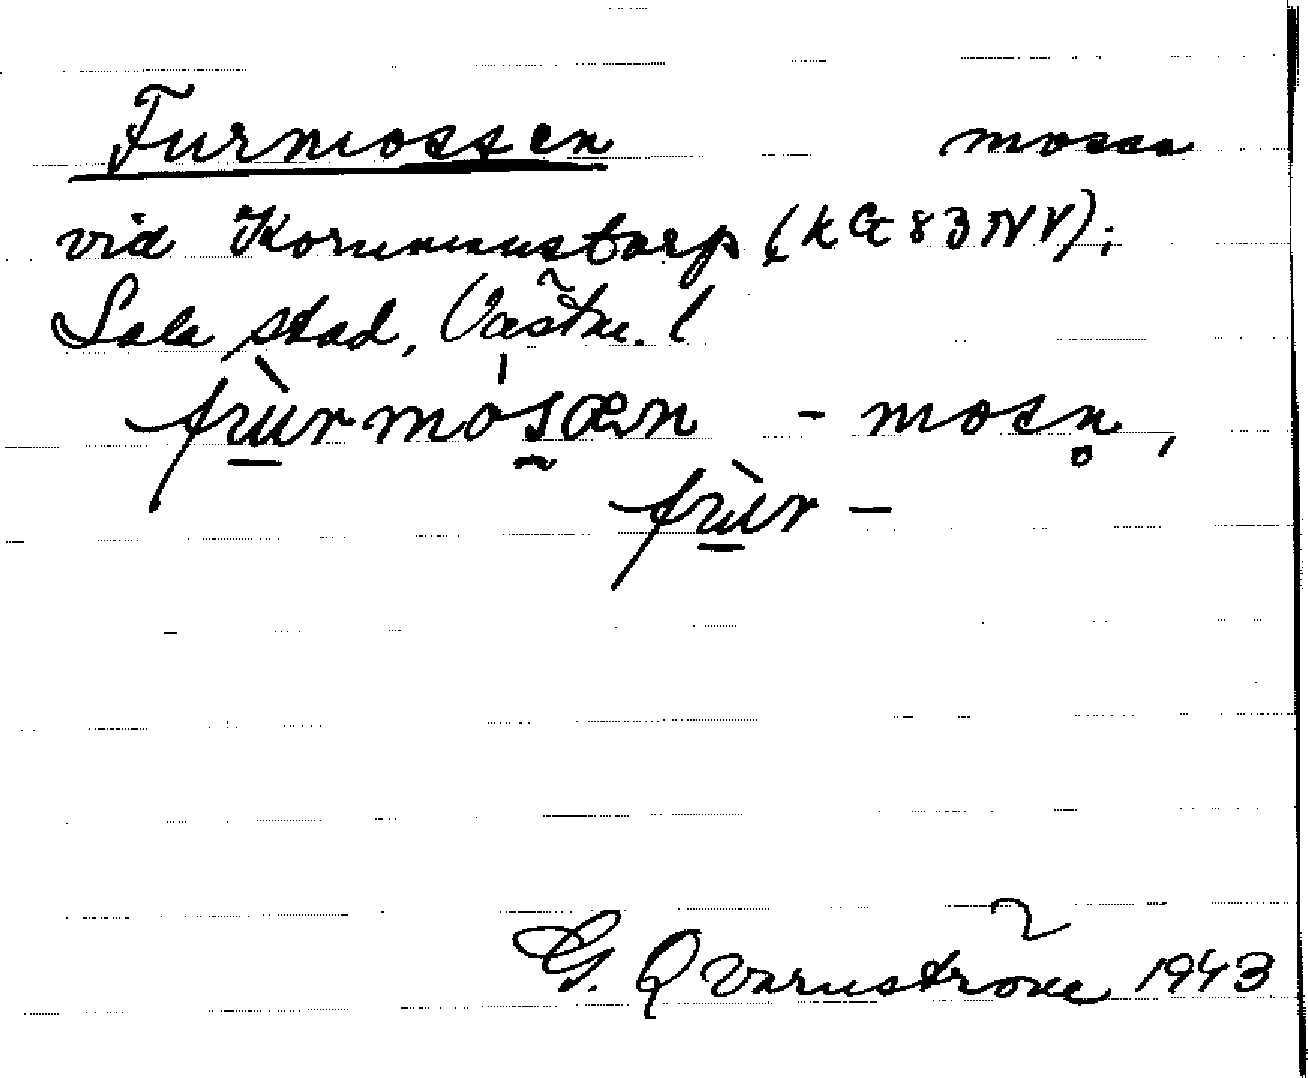 Furmossen mosse
vid Kornmustorp (k G 83 NV);
Sala stad, Västm. l
fùrmòsæn - mosn̥,
fùr -
G. Qvarnström 1943